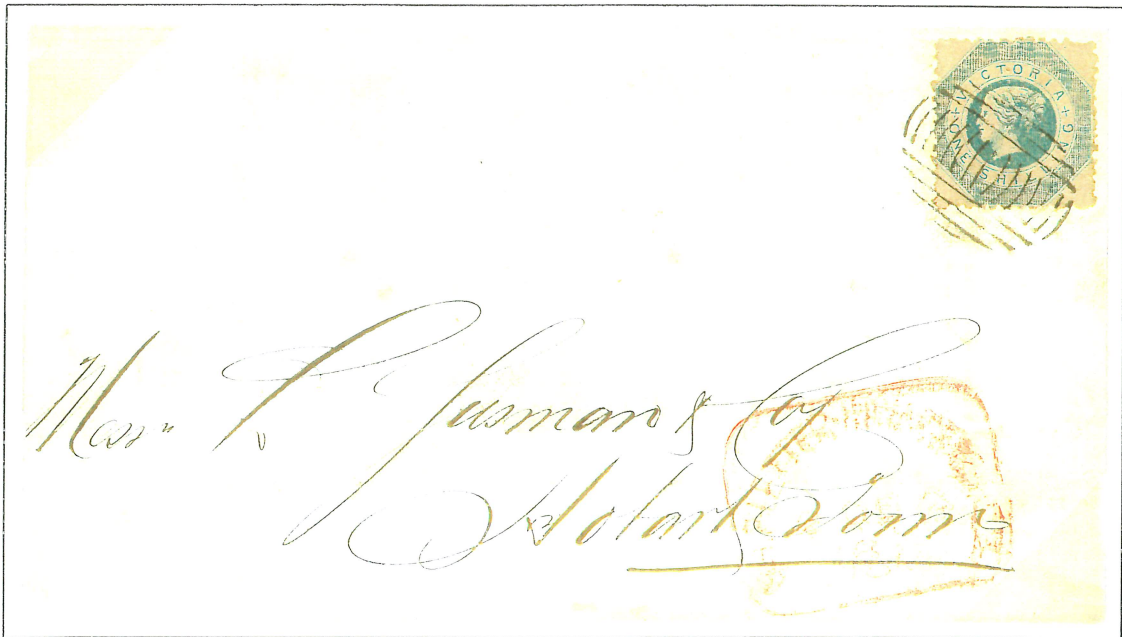 + VICTORIA +
ONE SHILLING
Messrs P. Jusman & Coy
Hobart Town